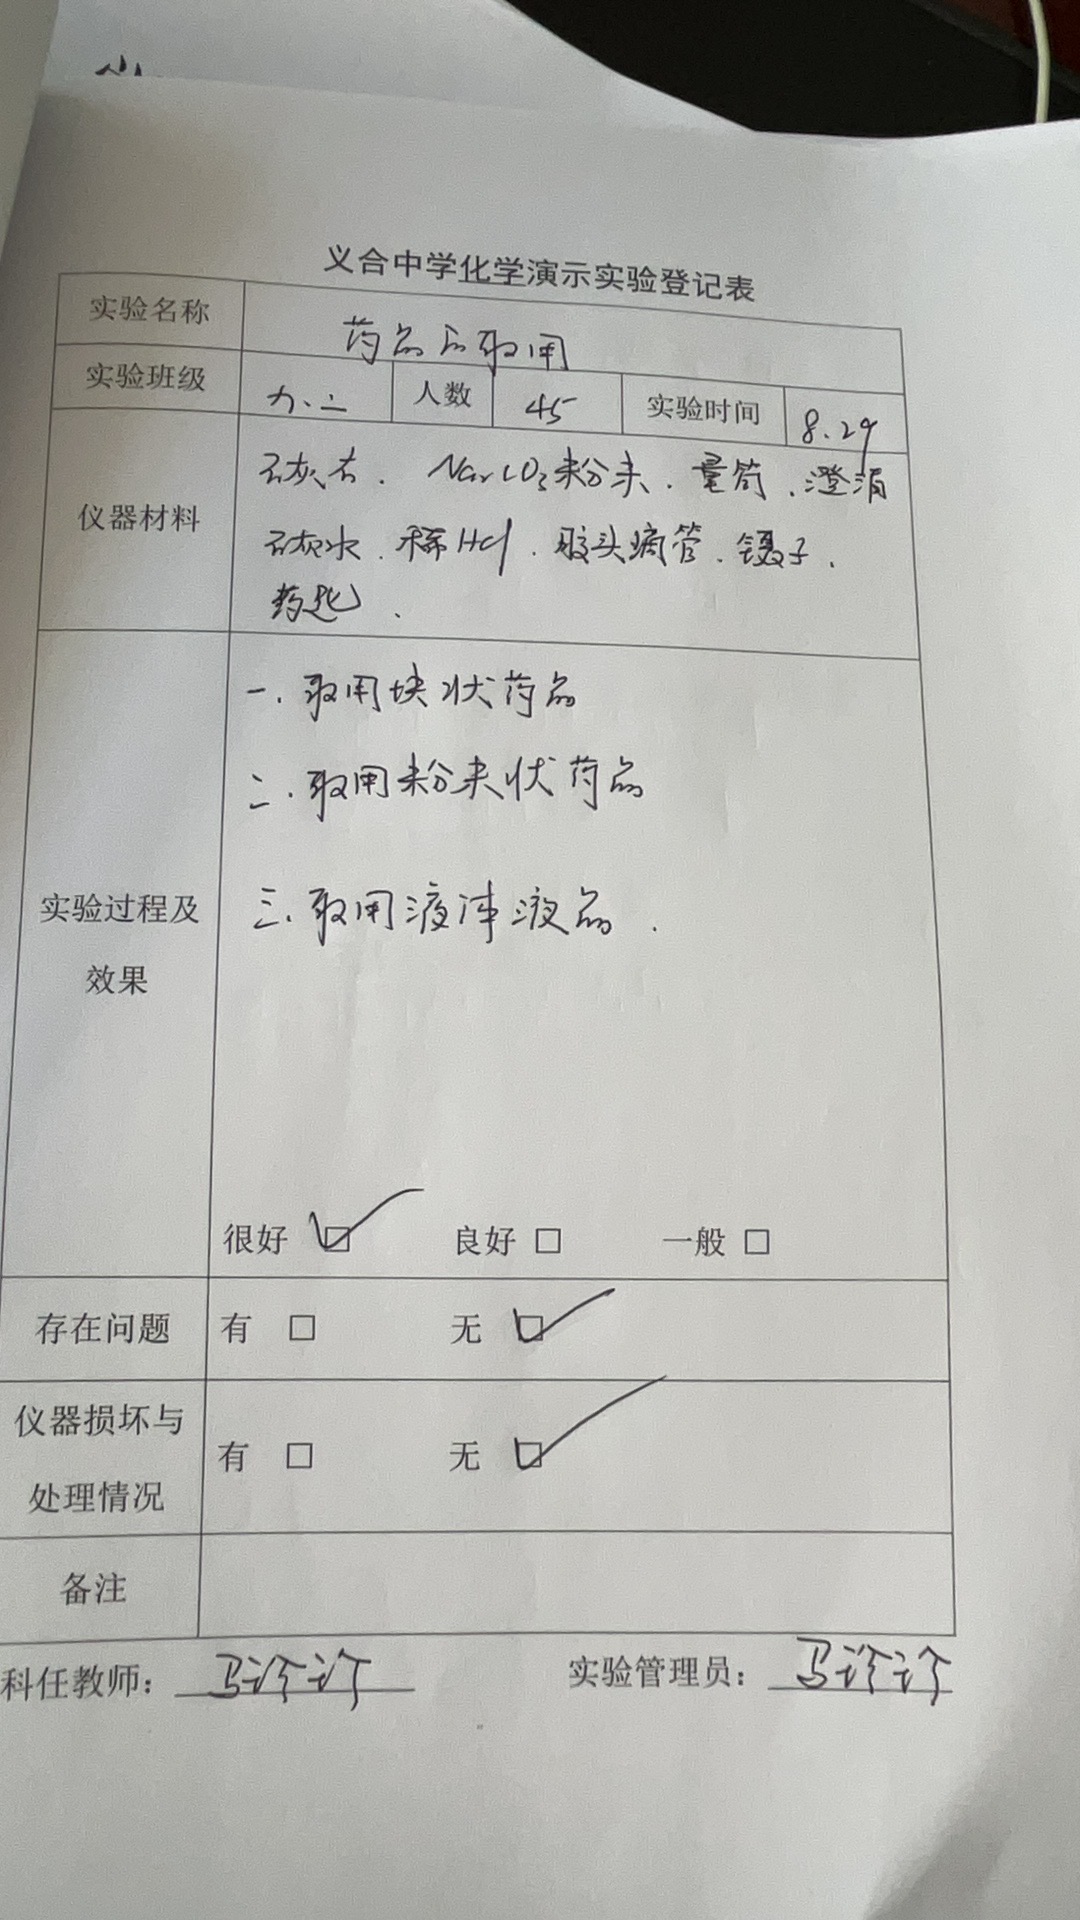 义合中学化学演示实验登记表
实验名称 药品的取用
实验班级 九.二 人数 45 实验时间 8.29
仪器材料
石灰石. Na₂CO₃粉末. 量筒. 澄清
石灰水. 稀HCl. 胶头滴管. 镊子.
药匙.
实验过程及
效果
一. 取用块状药品
二. 取用粉末状药品
三. 取用液体液品.
很好 ☑ 良好 □ 一般 □
存在问题 有 □ 无 ☑
仪器损坏与
处理情况
有 □ 无 ☑
备注
科任教师: 实验管理员: